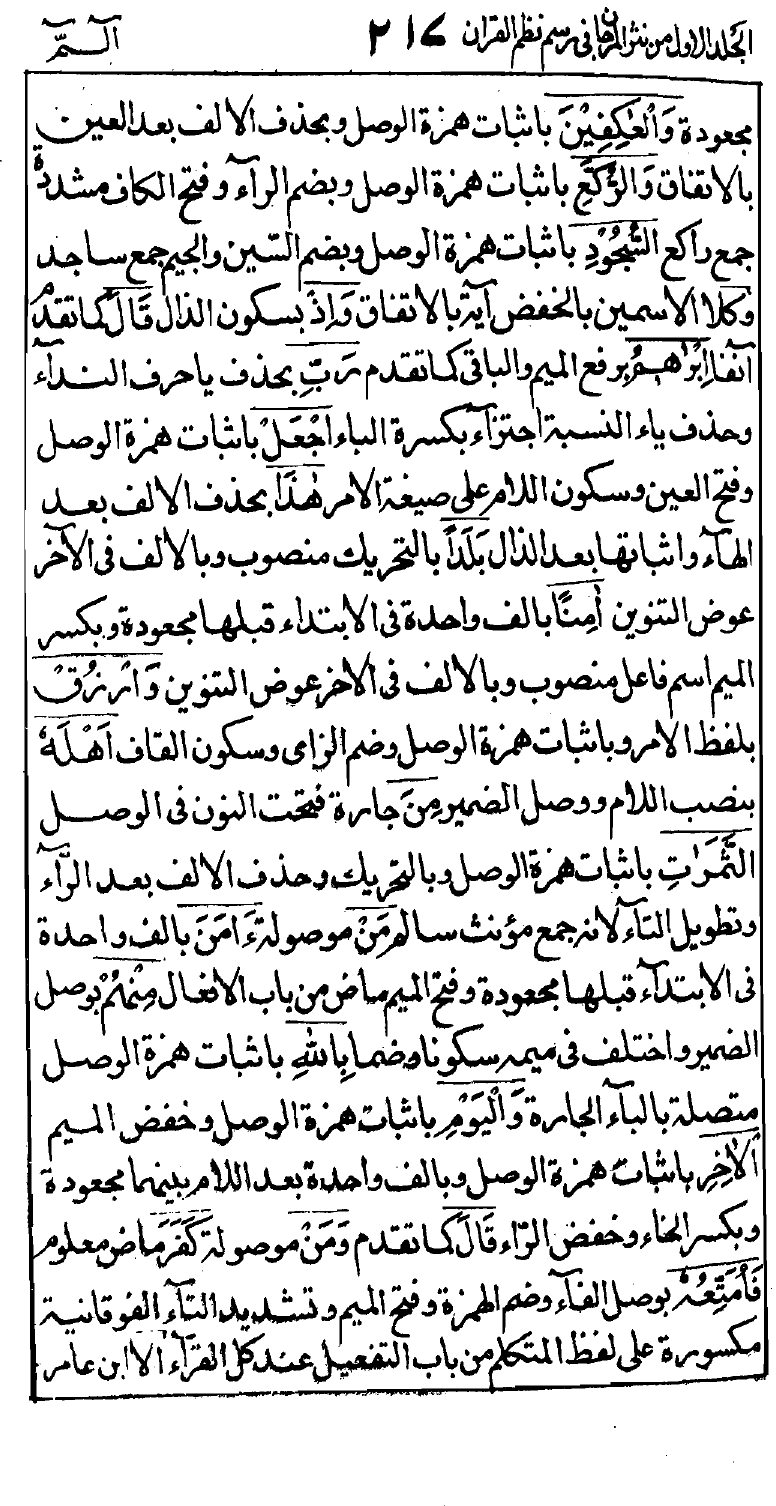 المجلد الاول من نثر المرجان فى رسم نظم القران ٢١٧ الــمّ
مجعودة وَالْعٰكِفِيْنَ باثبات همزة الوصل وبحذف الالف بعد العين
بالاتفاق وَالرُّكَّعِ باثبات همزة الوصل وبضم الرآء وفتح الكاف مشددة
جمع راكع السُّجُوْدِ باثبات همزة الوصل وبضم السّين والجيم جمع ساجد
وكلا الاسمين بالخفض آية بالاتفاق وَاِذْ بسكون الذال قَالَ كما تقدم
آنفا اِبْرٰهٖمُ برفع الميم والباقى كما تقدم رَبِّ بحذف يا حرف النداء
وحذف ياء النسبة اجتزآء بكسرة الباء اجْعَلْ باثبات همزة الوصل
وفتح العين وسكون اللام على صيغة الامر هٰذَا بحذف الالف بعد
الهآء واثباتها بعد الذال بَلَدًا بالتحريك منصوب وبالالف فى الآخر
عوض التنوين اٰمِنًا بالف واحدة فى الابتداء قبلها مجعودة وبكسر
الميم اسم فاعل منصوب وبالالف فى الاخر عوض التنوين وَارْزُقْ
بلفظ الامر وباثبات همزة الوصل وضم الزاى وسكون القاف اَهْلَهٗ
بنصب اللام ووصل الضمير مِنَ جارة فتحت النون فى الوصل
الثَّمَرٰتِ باثبات همزة الوصل وبالتحريك وحذف الالف بعد الرّآء
وتطويل التآء لانه جمع مؤنث سالم مَنْ موصولة ءَامَنَ بالف واحدة
فى الابتدآء قبلها مجعودة وفتح الميم ماض من باب الافعال مِنْهُمْ بوصل
الضمير واختلف فى ميمه سكونا وضما بِاللّٰهِ باثبات همزة الوصل
متصلة بالبآء الجارة وَالْيَوْمِ باثبات همزة الوصل وخفض الميم
الْاٰخِرِ باثبات همزة الوصل وبالف واحدة بعد اللام بينهما مجعودة
وبكسر الخاء وخفض الرّاء قَالَ كما تقدم وَمَنْ موصولة كَفَرَ ماض معلوم
فَاُمَتِّعُهٗ بوصل الفآء وضم الهمزة وفتح الميم وتشديد التآء الفوقانية
مكسورة على لفظ المتكلم من باب التفعيل عند كل القرآء الا ابن عامر